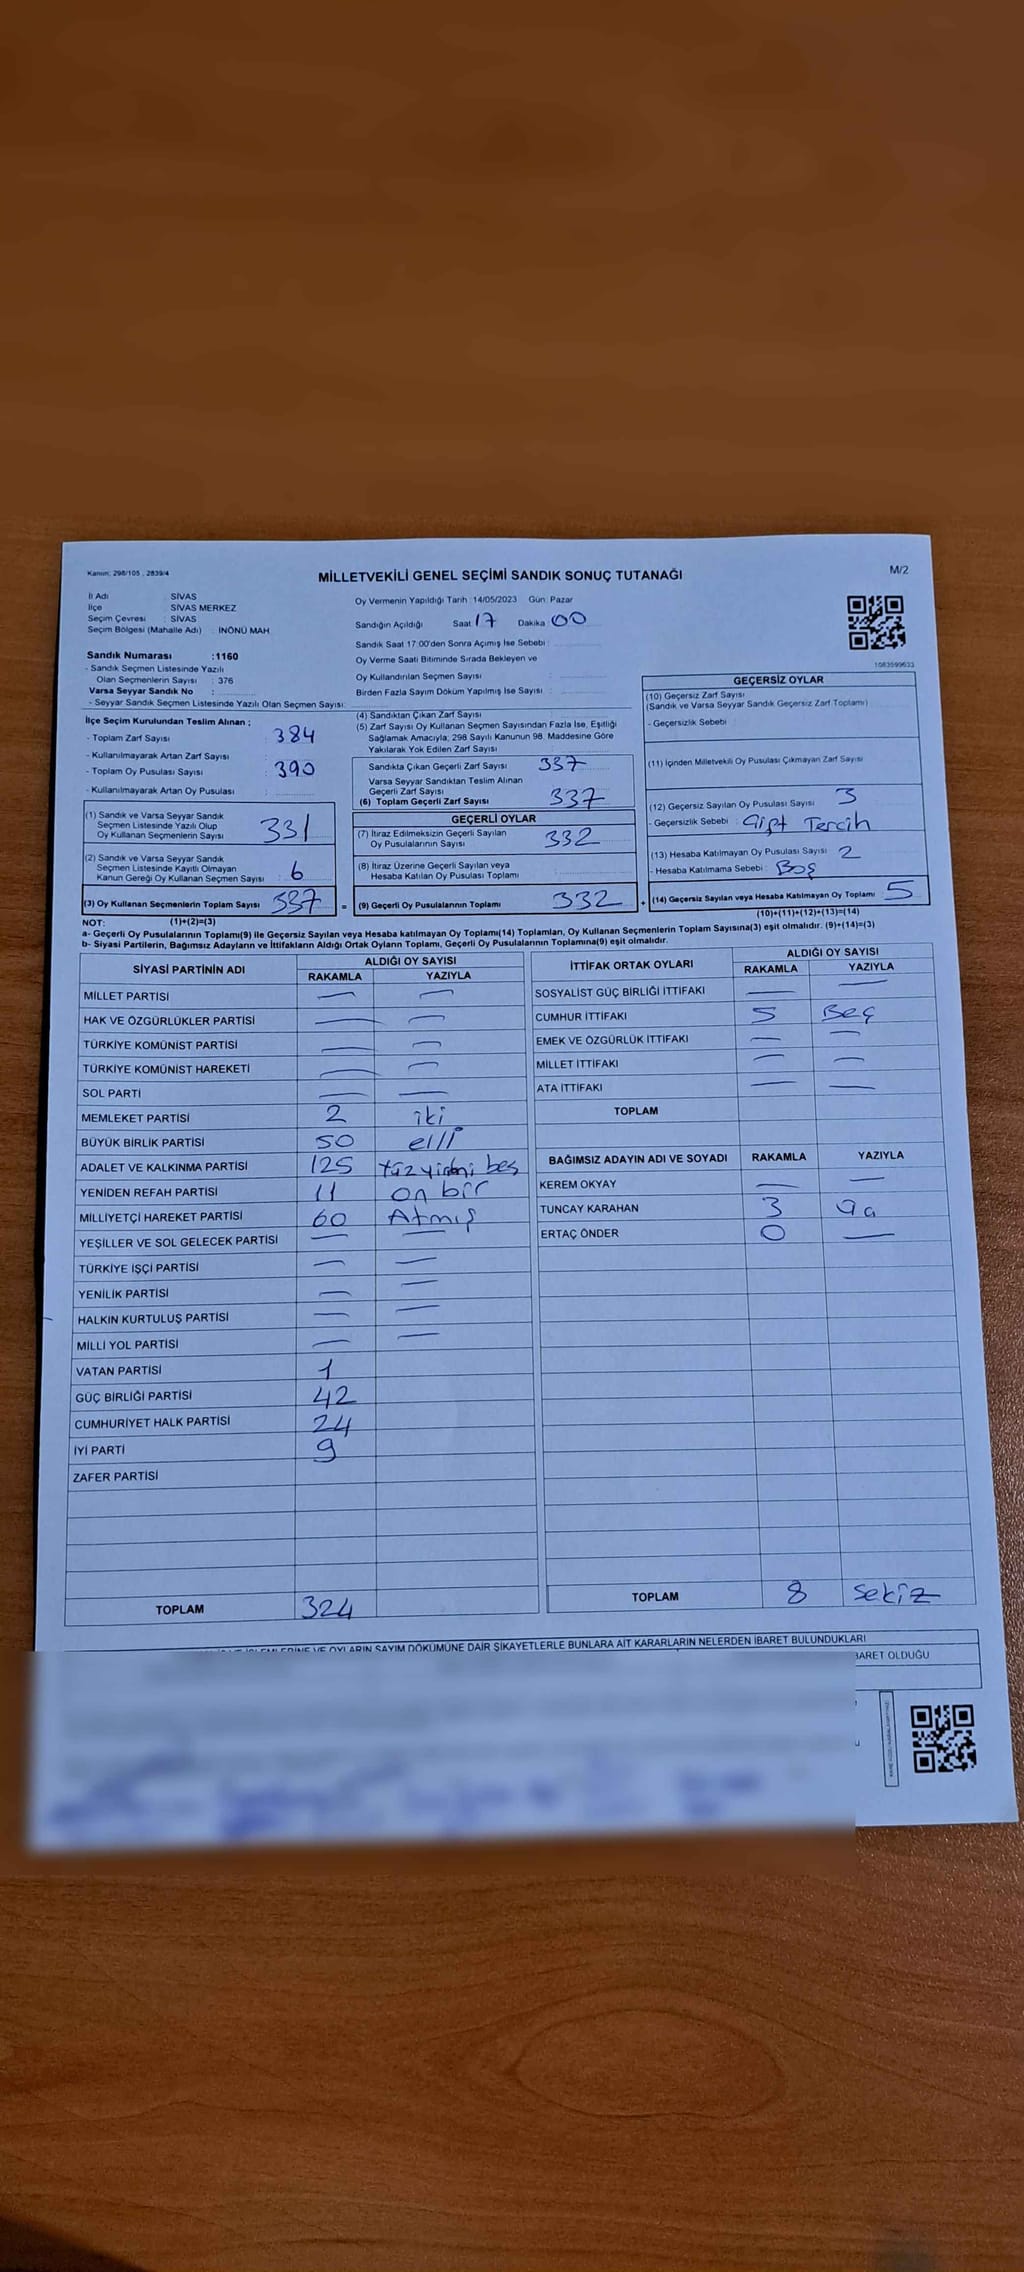 Kanun: 298/105 , 2839/4
MİLLETVEKİLİ GENEL SEÇİMİ SANDIK SONUÇ TUTANAĞI
M/2
İl Adı : SİVAS
İlçe : SİVAS MERKEZ
Seçim Çevresi : SİVAS
Seçim Bölgesi (Mahalle Adı) : İNÖNÜ MAH
Sandık Numarası :1160
- Sandık Seçmen Listesinde Yazılı
Olan Seçmenlerin Sayısı : 376
Varsa Seyyar Sandık No :
- Seyyar Sandık Seçmen Listesinde Yazılı Olan Seçmen Sayısı:
Oy Vermenin Yapıldığı Tarih :14/05/2023 Gün: Pazar
Sandığın Açıldığı Saat 17 Dakika 00
Sandık Saat 17:00'den Sonra Açımış İse Sebebi :
Oy Verme Saati Bitiminde Sırada Bekleyen ve
Oy Kullandırılan Seçmen Sayısı :
Birden Fazla Sayım Döküm Yapılmış İse Sayısı :
1083599633
İlçe Seçim Kurulundan Teslim Alınan ;
- Toplam Zarf Sayısı : 384
- Kullanılmayarak Artan Zarf Sayısı :
- Toplam Oy Pusulası Sayısı : 390
- Kullanılmayarak Artan Oy Pusulası :
(1) Sandık ve Varsa Seyyar Sandık
Seçmen Listesinde Yazılı Olup
Oy Kullanan Seçmenlerin Sayısı 331
(2) Sandık ve Varsa Seyyar Sandık
Seçmen Listesinde Kayıtlı Olmayan
Kanun Gereği Oy Kullanan Seçmen Sayısı : 6
(3) Oy Kullanan Seçmenlerin Toplam Sayısı 337 =
(1)+(2)=(3)
(4) Sandıktan Çıkan Zarf Sayısı :
(5) Zarf Sayısı Oy Kullanan Seçmen Sayısından Fazla İse, Eşitliği
Sağlamak Amacıyla, 298 Sayılı Kanunun 98. Maddesine Göre
Yakılarak Yok Edilen Zarf Sayısı :
Sandıkta Çıkan Geçerli Zarf Sayısı 337
Varsa Seyyar Sandıktan Teslim Alınan
Geçerli Zarf Sayısı
(6) Toplam Geçerli Zarf Sayısı 337
GEÇERLİ OYLAR
(7) İtiraz Edilmeksizin Geçerli Sayılan
Oy Pusulalarının Sayısı 332
(8) İtiraz Üzerine Geçerli Sayılan veya
Hesaba Katılan Oy Pusulası Toplamı
(9) Geçerli Oy Pusulalarının Toplamı 332 +
GEÇERSİZ OYLAR
(10) Geçersiz Zarf Sayısı
(Sandık ve Varsa Seyyar Sandık Geçersiz Zarf Toplamı)
- Geçersizlik Sebebi :
(11) İçinden Milletvekili Oy Pusulası Çıkmayan Zarf Sayısı
(12) Geçersiz Sayılan Oy Pusulası Sayısı 3
- Geçersizlik Sebebi : Çift Tercih
(13) Hesaba Katılmayan Oy Pusulası Sayısı 2
- Hesaba Katılmama Sebebi : Boş
(14) Geçersiz Sayılan veya Hesaba Katılmayan Oy Toplamı 5
(10)+(11)+(12)+(13)=(14)
NOT:
a- Geçerli Oy Pusulalarının Toplamı(9) ile Geçersiz Sayılan veya Hesaba katılmayan Oy Toplamı(14) Toplamları, Oy Kullanan Seçmenlerin Toplam Sayısına(3) eşit olmalıdır. (9)+(14)=(3)
b- Siyasi Partilerin, Bağımsız Adayların ve İttifakların Aldığı Ortak Oyların Toplamı, Geçerli Oy Pusulalarının Toplamına(9) eşit olmalıdır.
SİYASİ PARTİNİN ADI ALDIĞI OY SAYISI
RAKAMLA YAZIYLA
MİLLET PARTİSİ — —
HAK VE ÖZGÜRLÜKLER PARTİSİ — —
TÜRKİYE KOMÜNİST PARTİSİ — —
TÜRKİYE KOMÜNİST HAREKETİ — —
SOL PARTİ — —
MEMLEKET PARTİSİ 2 iki
BÜYÜK BİRLİK PARTİSİ 50 elli
ADALET VE KALKINMA PARTİSİ 125 yüzyirmi beş
YENİDEN REFAH PARTİSİ 11 on bir
MİLLİYETÇİ HAREKET PARTİSİ 60 Atmış
YEŞİLLER VE SOL GELECEK PARTİSİ — —
TÜRKİYE İŞÇİ PARTİSİ — —
YENİLİK PARTİSİ — —
HALKIN KURTULUŞ PARTİSİ — —
MİLLİ YOL PARTİSİ — —
VATAN PARTİSİ 1
GÜÇ BİRLİĞİ PARTİSİ 42
CUMHURİYET HALK PARTİSİ 24
İYİ PARTİ 9
ZAFER PARTİSİ
TOPLAM 324
İTTİFAK ORTAK OYLARI ALDIĞI OY SAYISI
RAKAMLA YAZIYLA
SOSYALİST GÜÇ BİRLİĞİ İTTİFAKI — —
CUMHUR İTTİFAKI 5 Beş
EMEK VE ÖZGÜRLÜK İTTİFAKI — —
MİLLET İTTİFAKI — —
ATA İTTİFAKI — —
TOPLAM
BAĞIMSIZ ADAYIN ADI VE SOYADI RAKAMLA YAZIYLA
KEREM OKYAY — —
TUNCAY KARAHAN 3
ERTAÇ ÖNDER 0 —
TOPLAM 8 Sekiz
OYLARIN SAYIM DÖKÜMÜNE DAİR ŞİKAYETLERLE BUNLARA AİT KARARLARIN NELERDEN İBARET BULUNDUKLARI
OLDUĞU